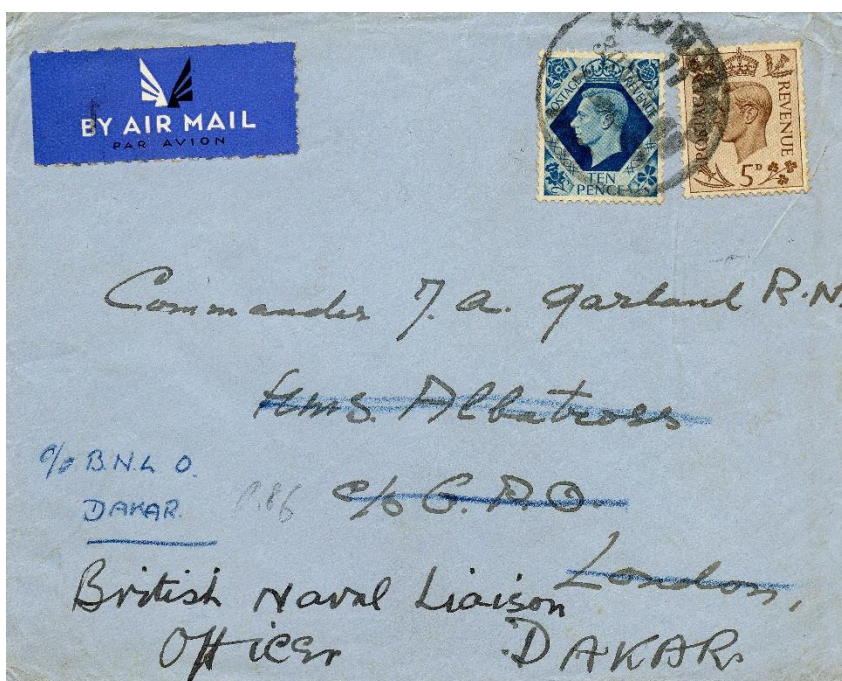 BY AIR MAIL
PAR AVION
POSTAGE REVENUE
TEN
PENCE
POSTAGE REVENUE
5D
Commander J. A. Garland R.N.
HMS. Albatross
c/o G.P.O.
London,
c/o B.N.L O.
DAKAR.
P.86
British Naval Liaison
Officer DAKAR.